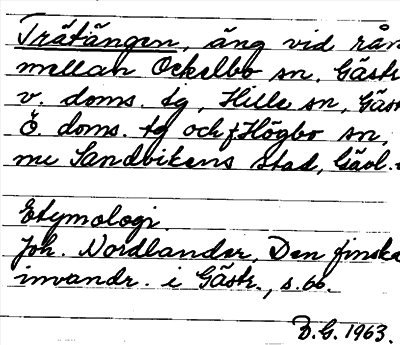 Trätängen, äng vid rån
mellan Ockelbo sn, Gästr.
v. doms. tg, Hille sn, Gäst
Ö doms. tg och f Högbo sn,
nu Sandvikens stad, Gävl.
Etymologi.
Joh. Nordlander, Den finska
invandr. i Gästr., s. 66.
D.G. 1963.